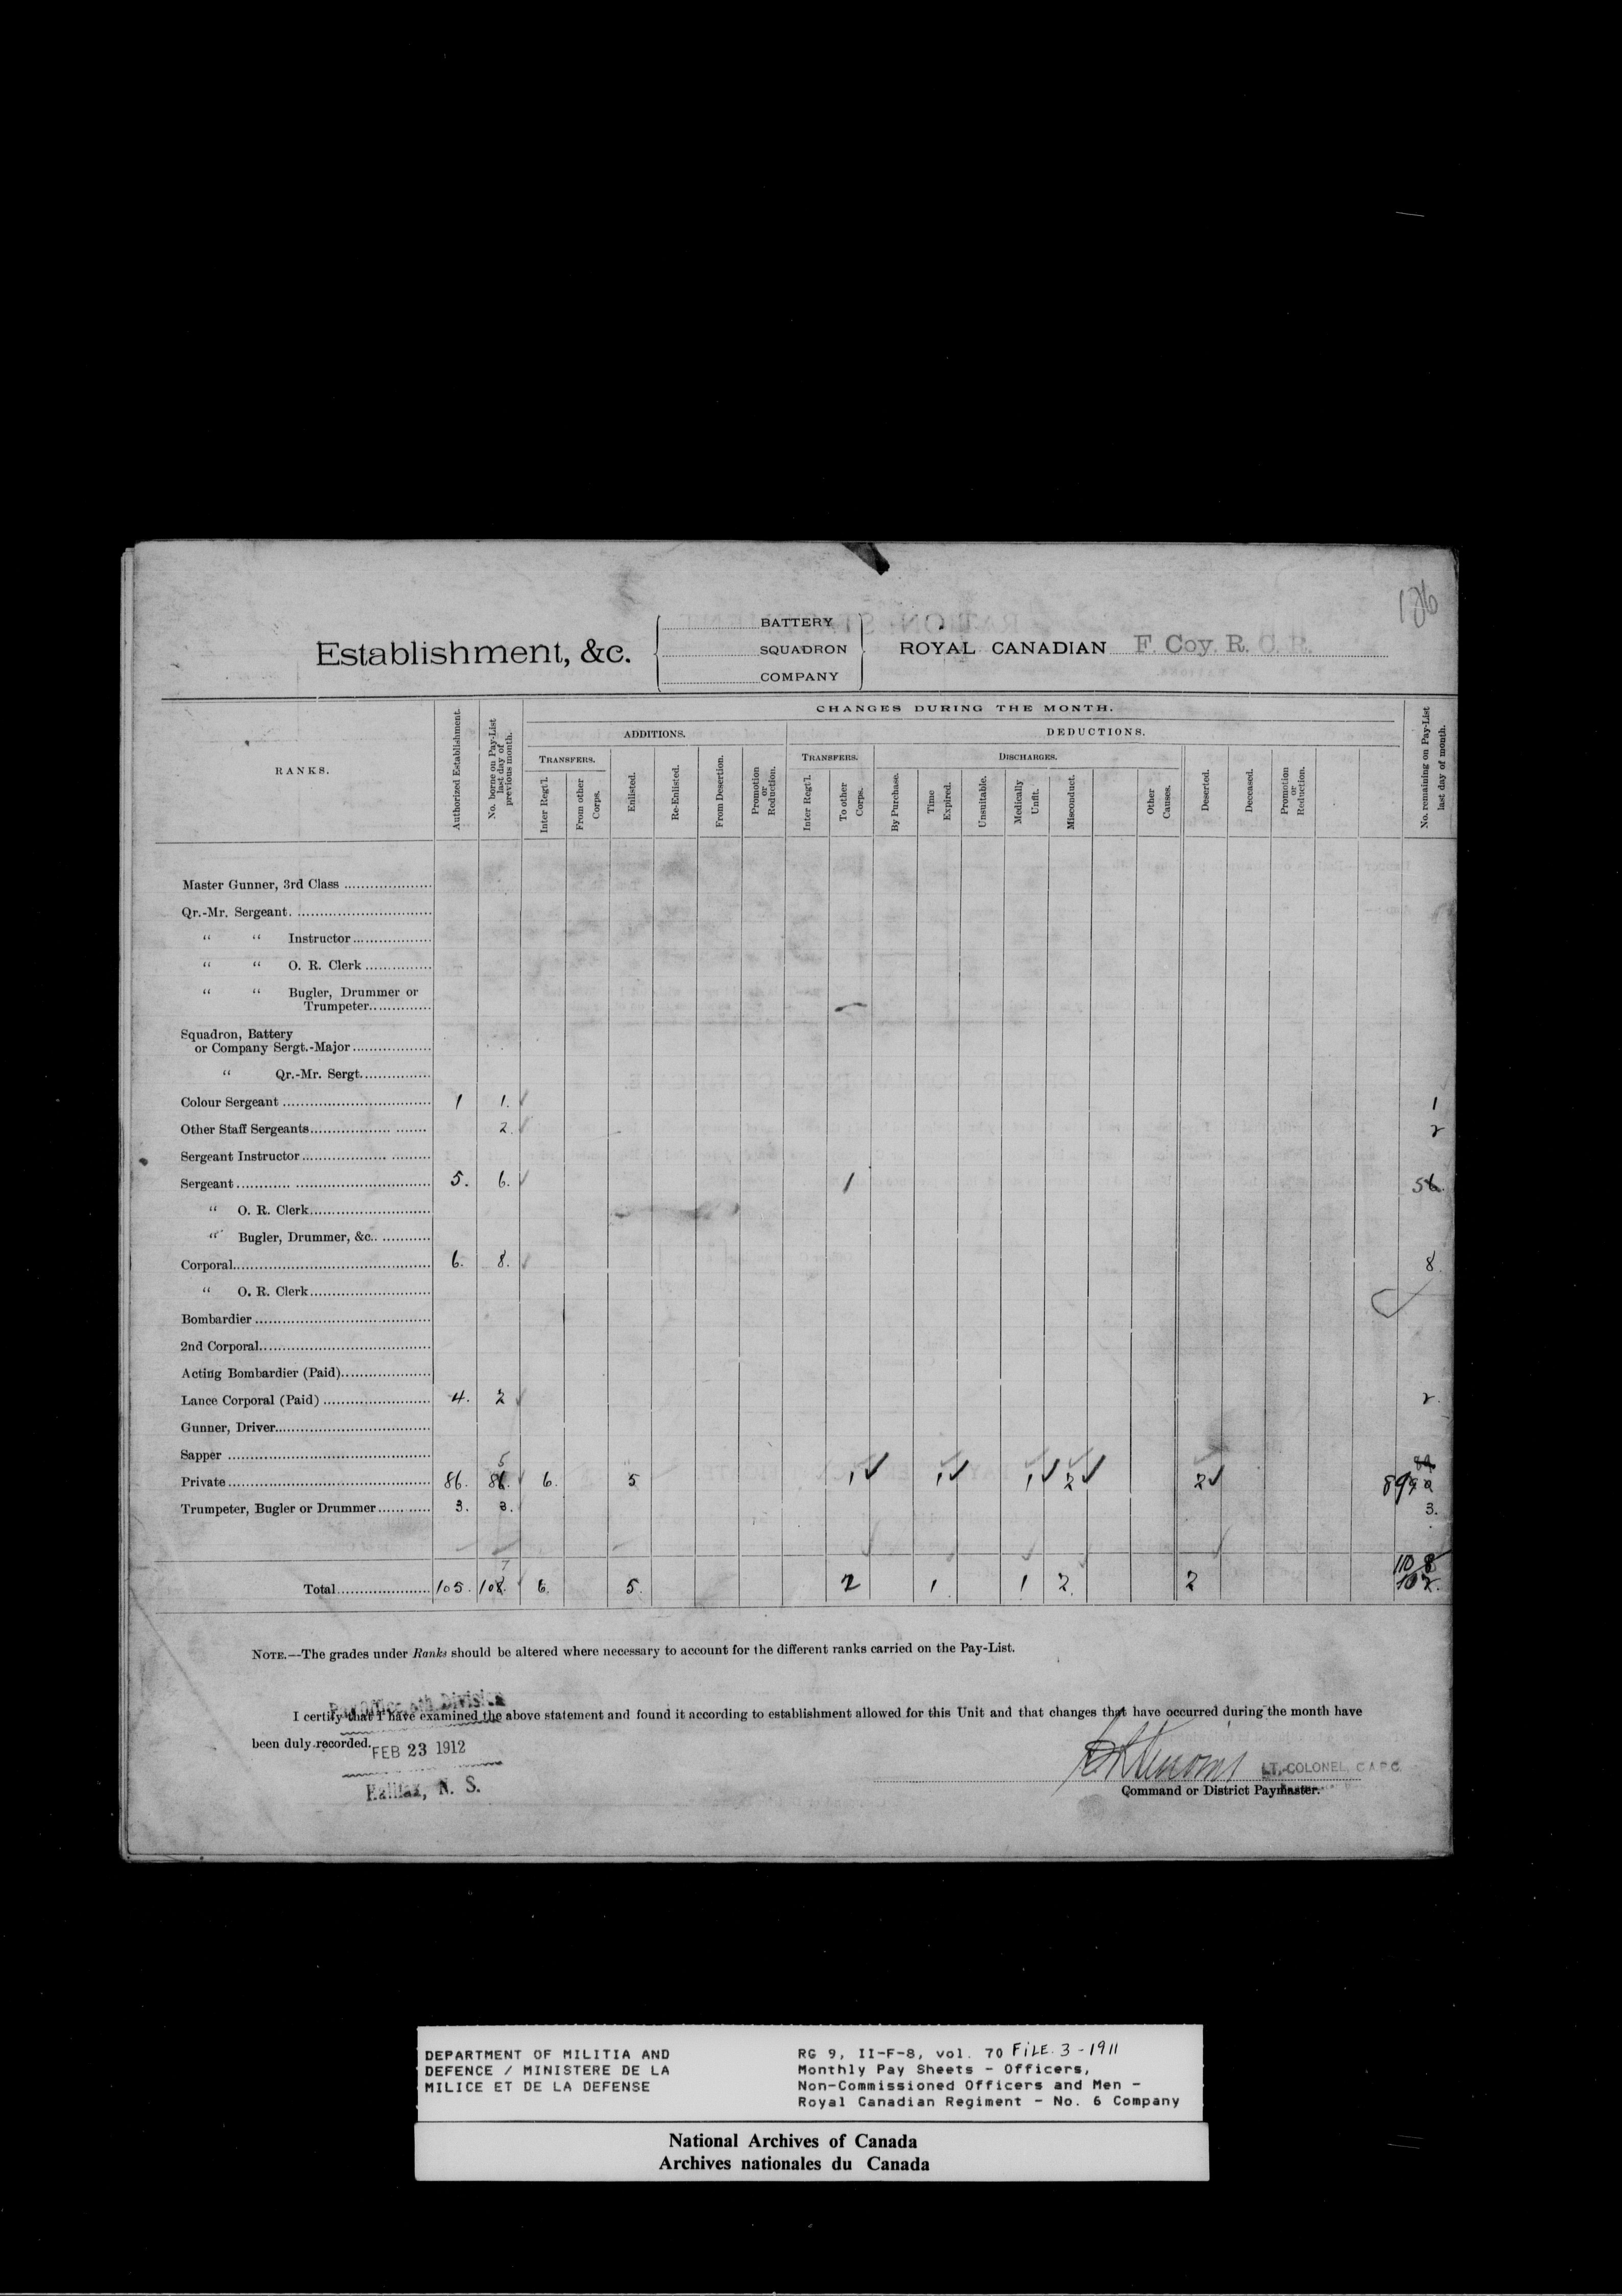 186
Establishment, &c.
BATTERY
SQUADRON
COMPANY
ROYAL CANADIAN F. Coy. R. C. R.
RANKS.
Authorized Establishment.
No. borne on Pay-List last day of previous month.
CHANGES DURING THE MONTH.
ADDITIONS.
DEDUCTIONS.
No. remaining on Pay-List last day of month.
TRANSFERS.
Inter Regt'l.
From other Corps.
Enlisted.
Re-Enlisted.
From Desertion.
Promotion or Reduction.
TRANSFERS.
Inter Regt'l.
To other Corps.
DISCHARGES.
By Purchase.
Time Expired.
Unsuitable.
Medically Unfit.
Misconduct.
Other Causes.
Deserted.
Deceased.
Promotion or Reduction.
Master Gunner, 3rd Class
Qr.-Mr. Sergeant.
" " Instructor
" " O. R. Clerk
" " Bugler, Drummer or
Trumpeter
Squadron, Battery
or Company Sergt.-Major
" Qr.-Mr. Sergt.
Colour Sergeant 1 1. 1
Other Staff Sergeants 2. 2
Sergeant Instructor
Sergeant 5. 6. 1 5 6.
" O. R. Clerk
" Bugler, Drummer, &c.
Corporal 6. 8. 8.
" O. R. Clerk
Bombardier
2nd Corporal
Acting Bombardier (Paid)
Lance Corporal (Paid) 4. 2 2.
Gunner, Driver
Sapper
Private 86. 86. 5 6. 5 1 1 1 2 2 89
Trumpeter, Bugler or Drummer 3. 3. 3.
Total 105. 108. 7 6. 5. 2 1 1 2. 2 110 8 107.
NOTE.—The grades under Ranks should be altered where necessary to account for the different ranks carried on the Pay-List.
Pay Office 6th Division
I certify that I have examined the above statement and found it according to establishment allowed for this Unit and that changes that have occurred during the month have
been duly recorded.
FEB 23 1912
Halifax, N. S.
LT.-COLONEL, C.A.P.C.
Command or District Paymaster.
DEPARTMENT OF MILITIA AND
DEFENCE / MINISTERE DE LA
MILICE ET DE LA DEFENSE
RG 9, II-F-8, vol. 70 FILE. 3 - 1911
Monthly Pay Sheets - Officers,
Non-Commissioned Officers and Men -
Royal Canadian Regiment - No. 6 Company
National Archives of Canada
Archives nationales du Canada